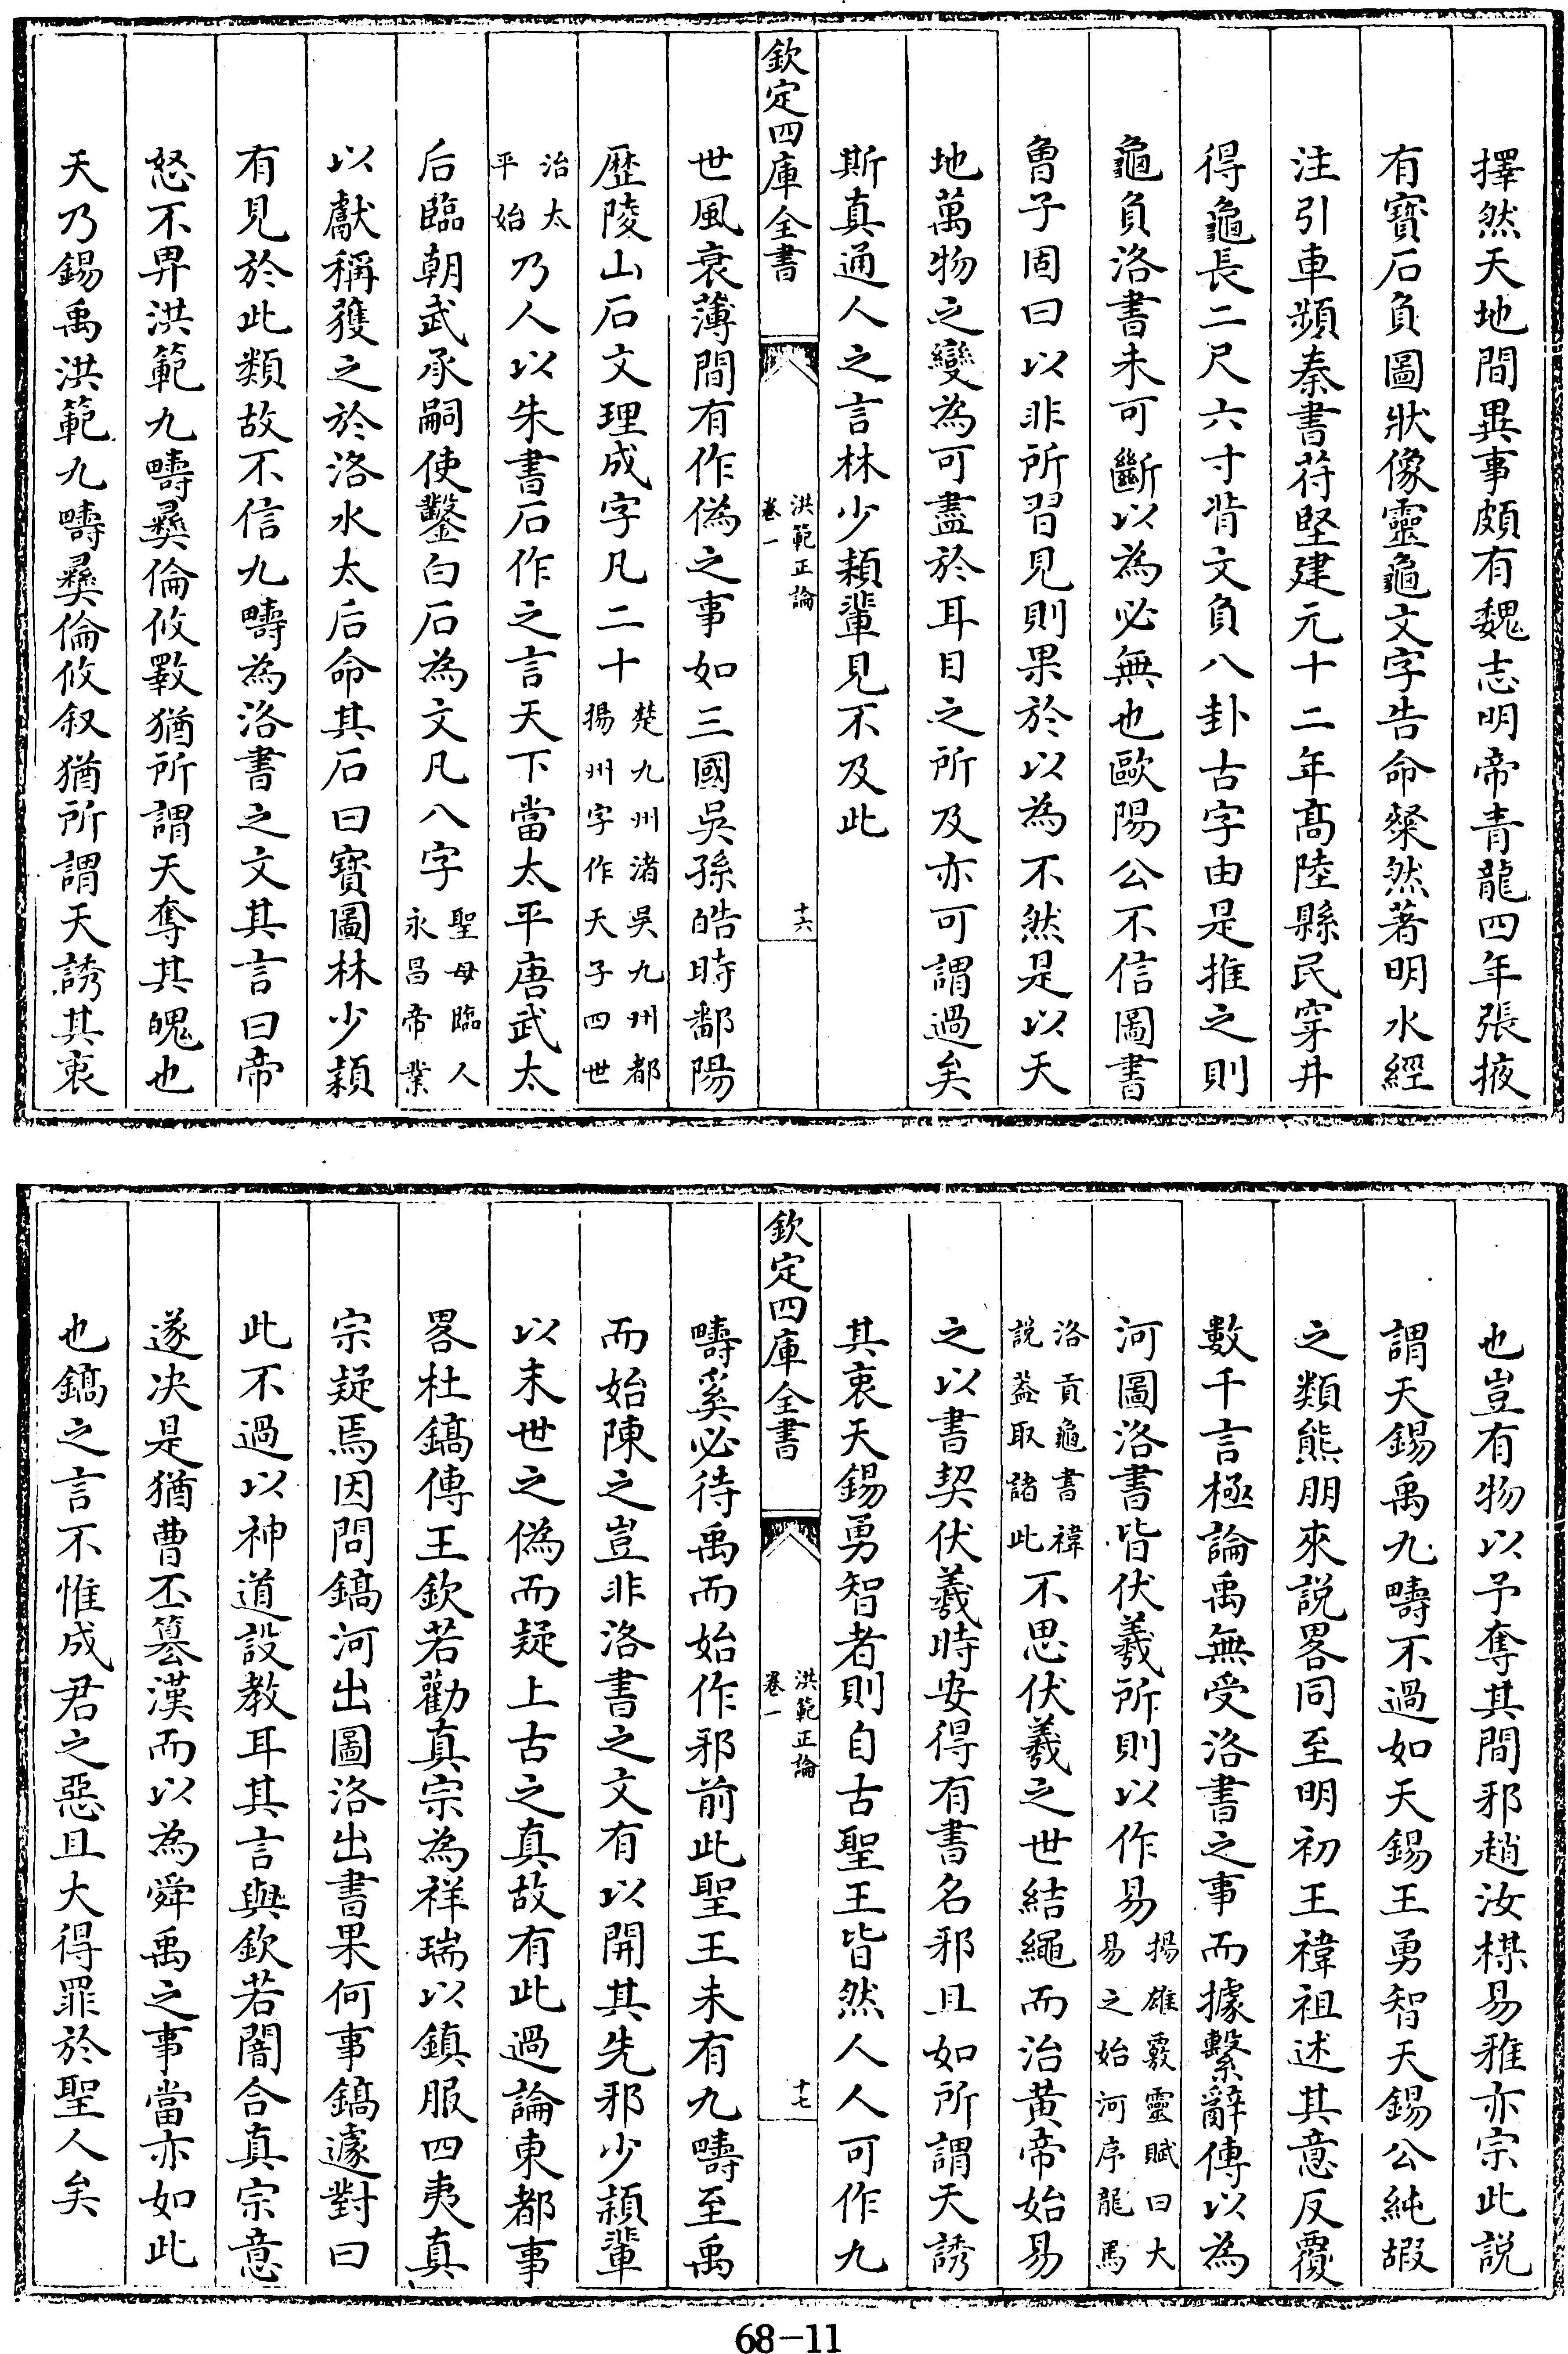 擇然天地間異事頗有魏志明帝青龍四年張掖
有寶石負圖狀像靈龜文字告命粲然著明水經
注引車頻秦書苻堅建元十二年髙陸縣民穿井
得龜長二尺六寸背文負八卦古字由是推之則
龜負洛書未可斷以為必無也歐陽公不信圖書
魯子固曰以非所習見則果於以為不然是以天
地萬物之變為可盡於耳目之所及亦可謂過矣
斯真通人之言林少穎輩見不及此
欽定四庫全書
洪範正論
卷一
十六
世風衰薄間有作偽之事如三國吳孫皓時鄱陽
歴陵山石文理成字凡二十楚九州渚吳九州都揚州字作天子四世
治太平始乃人以朱書石作之言天下當太平唐武太
后臨朝武承嗣使鑿白石為文凡八字聖母臨人永昌帝業
以獻稱獲之於洛水太后命其石曰寶圖林少穎
有見於此類故不信九疇為洛書之文其言曰帝
怒不畀洪範九疇彝倫攸斁猶所謂天奪其魄也
天乃錫禹洪範九疇彝倫攸叙猶所謂天誘其衷
也豈有物以予奪其間邪趙汝楳易雅亦宗此説
謂天錫禹九疇不過如天錫王勇智天錫公純嘏
之類熊朋來説畧同至明初王褘祖述其意反覆
數千言極論禹無受洛書之事而據繫辭傳以為
河圖洛書皆伏羲所則以作易揚雄覈靈賦曰大易之始河序龍馬
洛貢龜書褘説葢取諸此不思伏羲之世結繩而治黄帝始易
之以書契伏羲時安得有書名邪且如所謂天誘
其衷天錫勇智者則自古聖王皆然人人可作九
欽定四庫全書
洪範正論
卷一
十七
疇奚必待禹而始作邪前此聖王未有九疇至禹
而始陳之豈非洛書之文有以開其先邪少穎輩
以末世之偽而疑上古之真故有此過論東都事
畧杜鎬傳王欽若勸真宗為祥瑞以鎮服四夷真
宗疑焉因問鎬河出圖洛出書果何事鎬遽對曰
此不過以神道設教耳其言與欽若闇合真宗意
遂决是猶曹丕篡漢而以為舜禹之事當亦如此
也鎬之言不惟成君之惡且大得罪於聖人矣
68-11